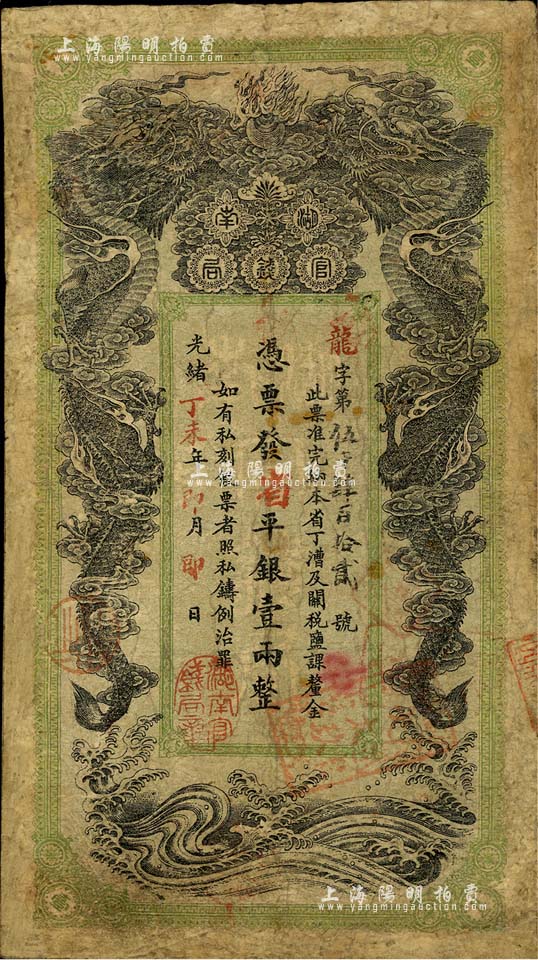 上海陽明拍賣
www.yangmingauction.com
湖南
官錢局
龍字第伍百拾貳號
此票准完納本省丁漕及關稅鹽課釐金
憑票發省平銀壹兩整
如有私刻假票者照私鑄例治罪
光緒丁未年即月即日
湖南官錢局
上海陽明拍賣
www.yangmingauction.com
上海陽明拍賣
www.yangmingauction.com